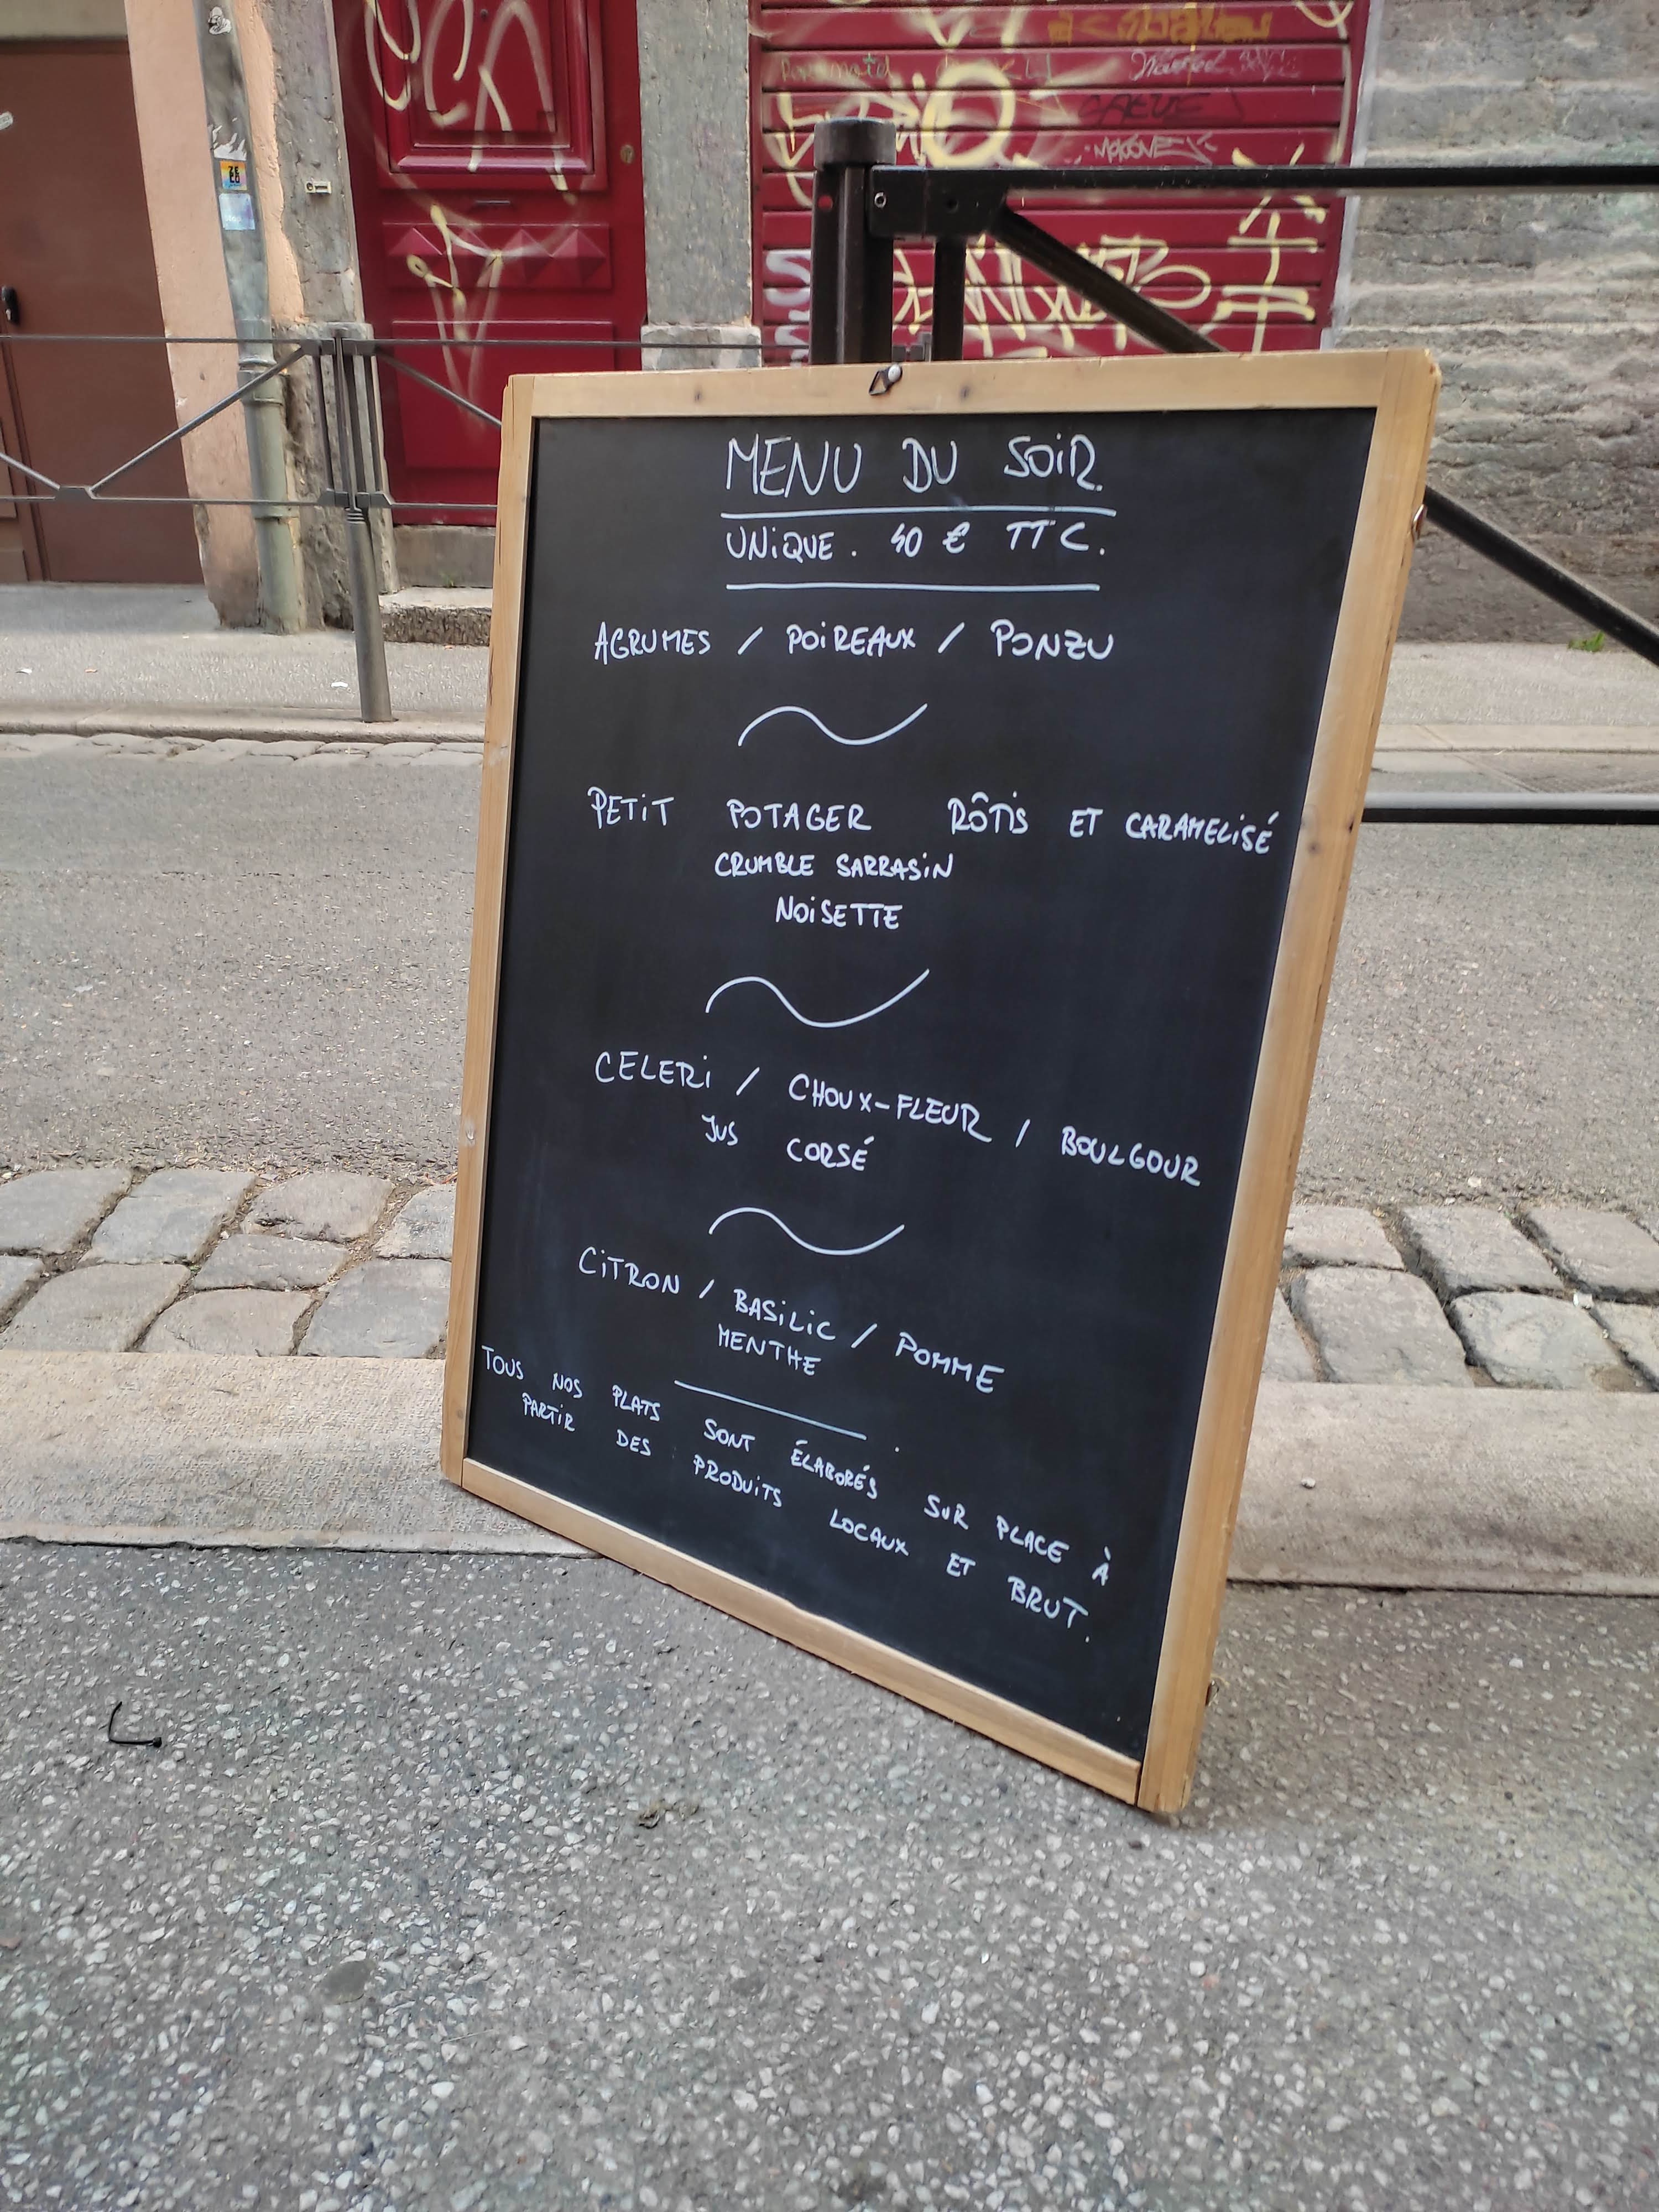 MENU DU SOIR.
UNIQUE. 40 € TTC.
AGRUMES / POIREAUX / PONZU
PETIT POTAGER RÔTIS ET CARAMELISÉ
CRUMBLE SARRASIN
NOISETTE
CELERI / CHOUX-FLEUR / BOULGOUR
JUS CORSÉ
CITRON / BASILIC / POMME
MENTHE
TOUS NOS PLATS SONT ÉLABORÉS SUR PLACE À
PARTIR DES PRODUITS LOCAUX ET BRUT.